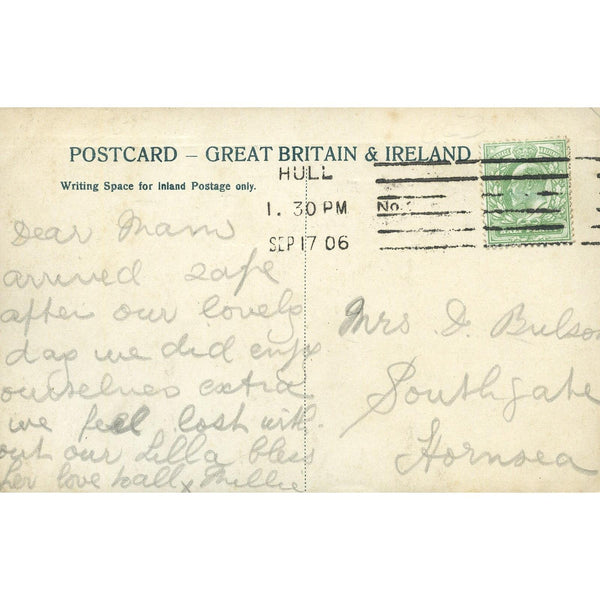 POSTCARD – GREAT BRITAIN & IRELAND
Writing Space for Inland Postage only.
HULL
1. 30 PM
SEP 17 06
No.
Dear Mam
arrived safe
after our lovely
day we did enjoy
ourselves extra
we feel lost with
out our Lilla bless
her love to all x Millie
Mrs D. Bulson
Southgate
Hornsea